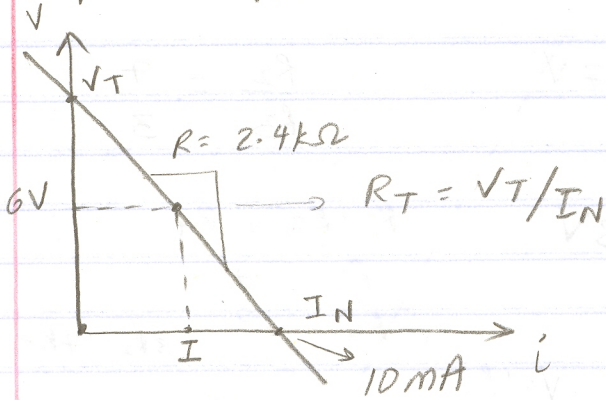 V
VT
R = 2.4kΩ
6V
RT = VT/IN
IN
I
i
10mA